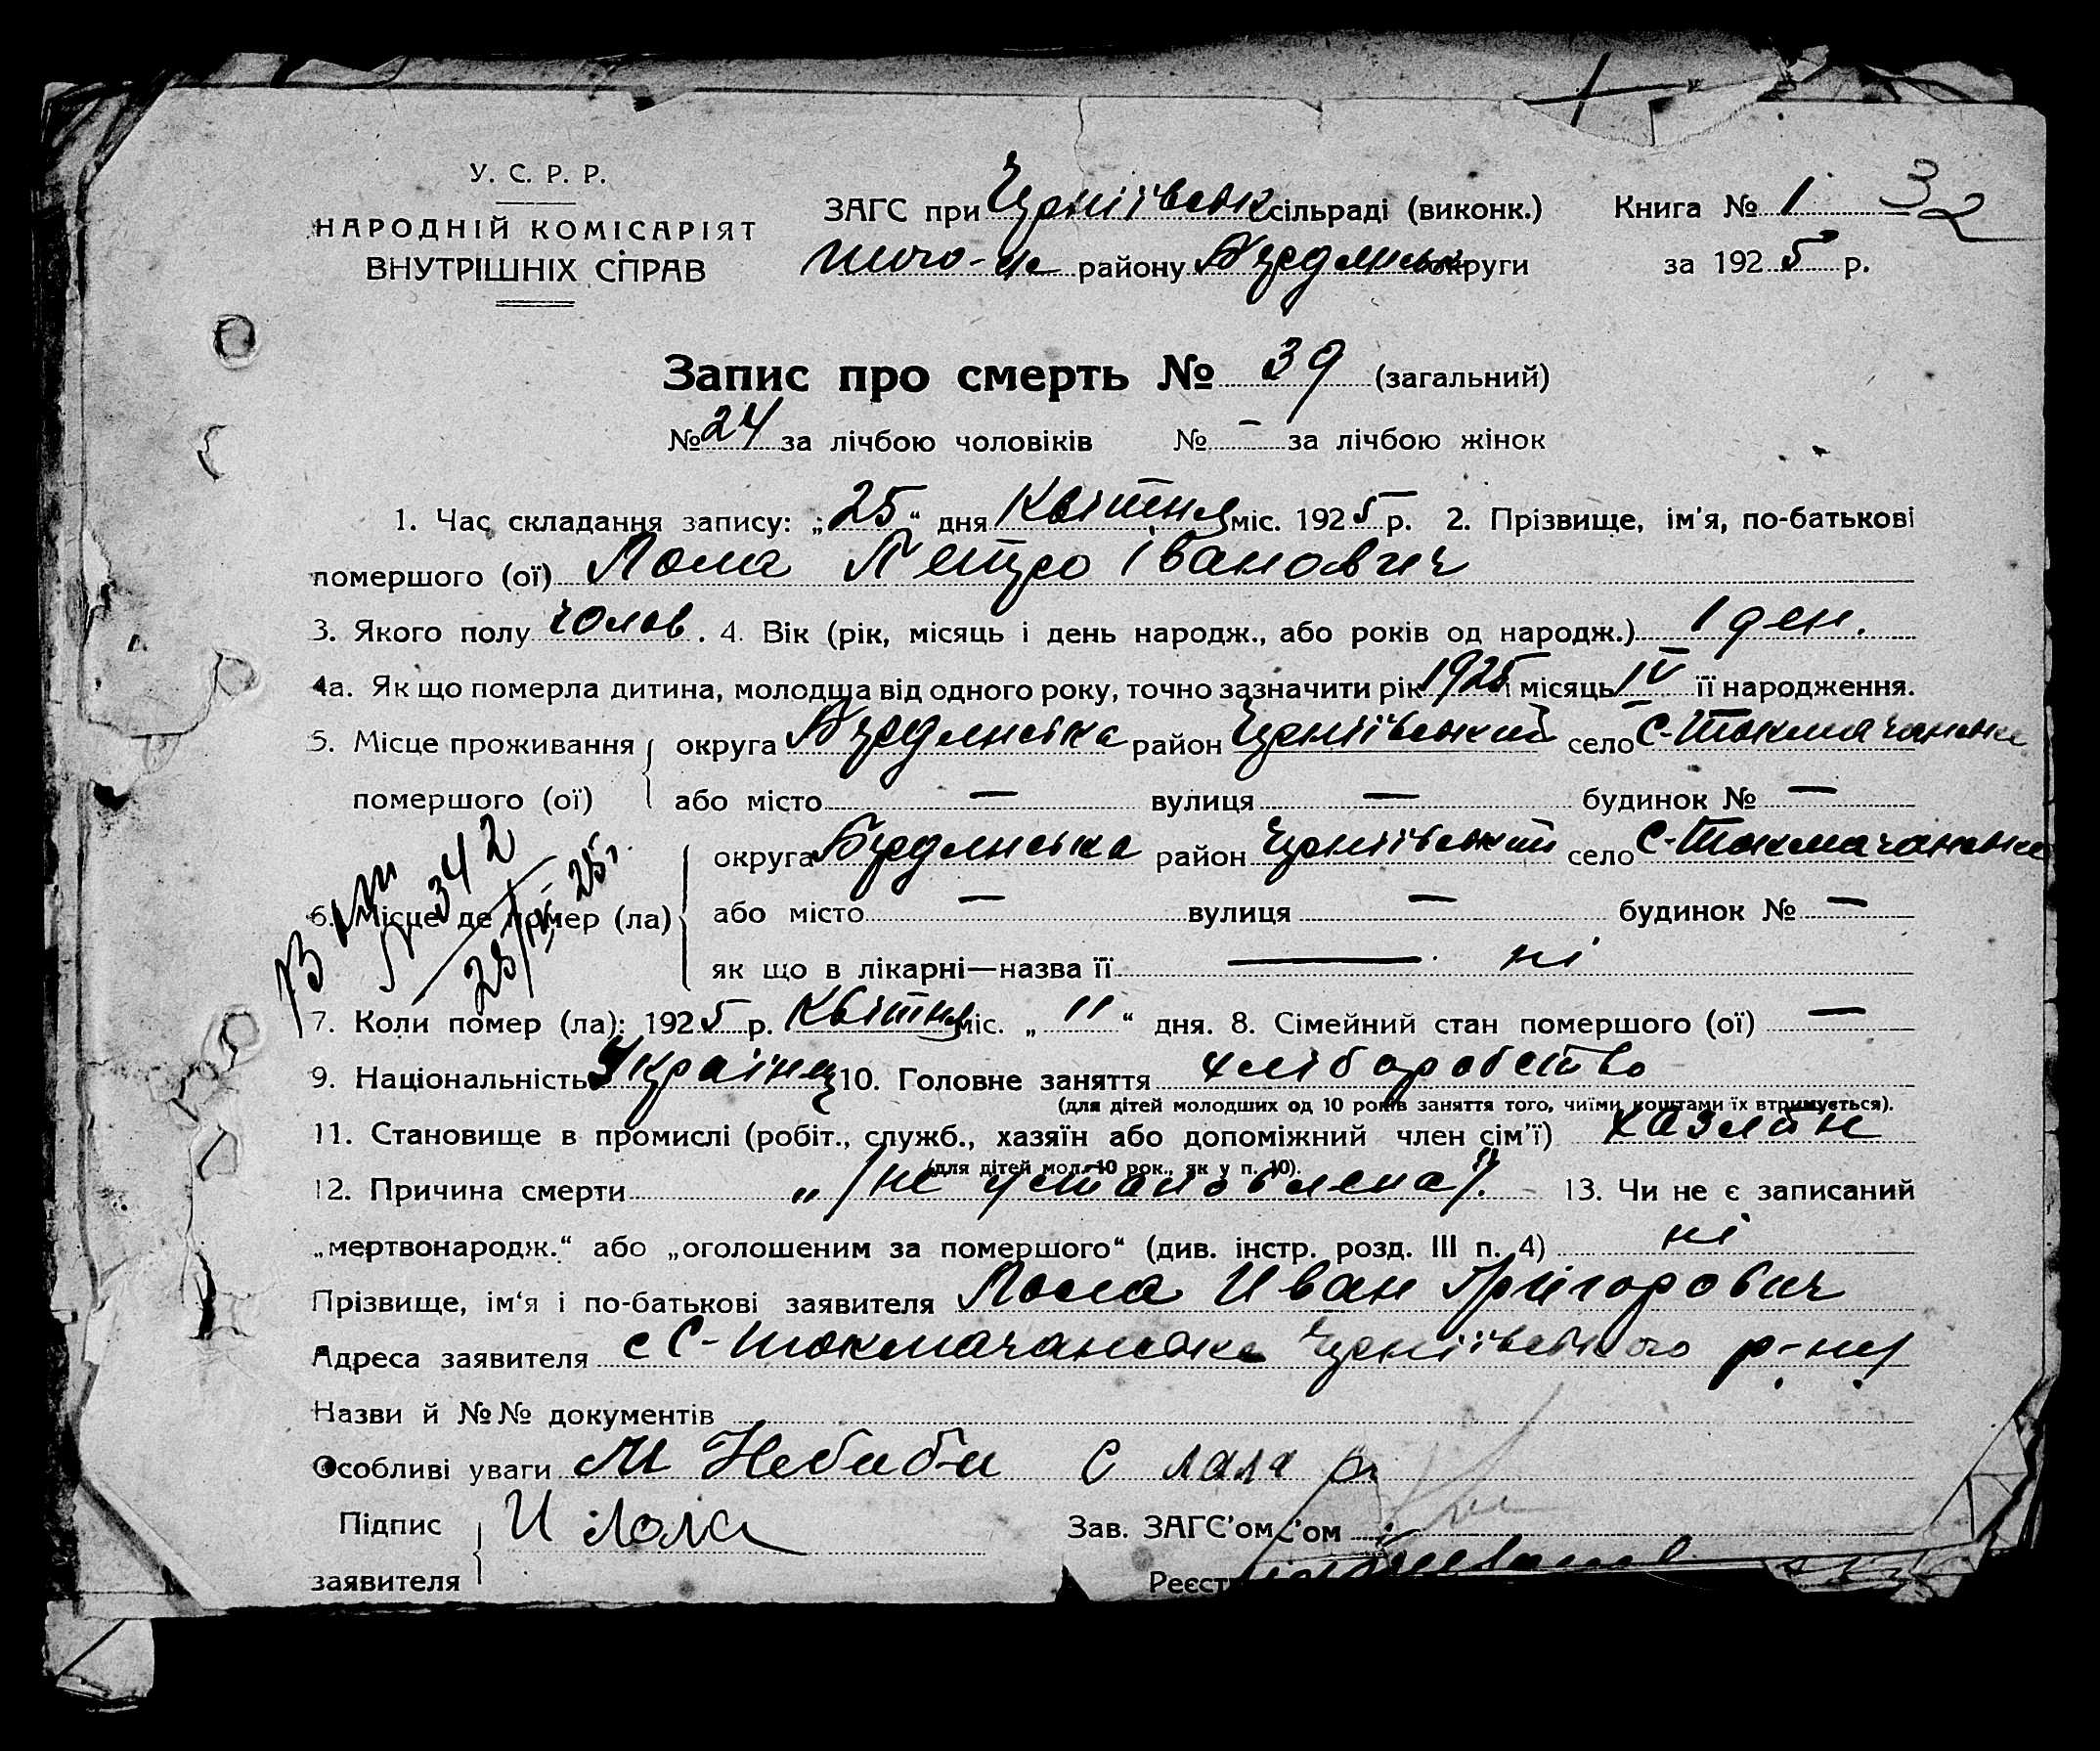 У. С. Р. Р.
НАРОДНІЙ КОМІСАРІЯТ
ВНУТРІШНІХ СПРАВ
ЗАГС при сільраді (виконк.)
району округи
Книга № 1 32
за 1925 р.
Запис про смерть № 39 (загальний)
№ 24 за лічбою чоловіків № – за лічбою жінок
1. Час складання запису: „25“ дня Квітня міс. 1925 р. 2. Прізвище, ім'я, по-батькові
помершого (ої) Лола Петро Іванович
3. Якого полу чолов. 4. Вік (рік, місяць і день народж., або років од народж.) 1 ден.
4а. Як що померла дитина, молодша від одного року, точно зазначити рік 1925 і місяць IV її народження.
5. Місце проживання округа район село
помершого (ої) або місто — вулиця — будинок № —
№ 342
28/IV 25 г.
6. Місце де помер (ла) округа район село
або місто — вулиця — будинок № —
як що в лікарні—назва її — ні
7. Коли помер (ла): 1925 р. Квітня міс. „11“ дня. 8. Сімейний стан помершого (ої) —
9. Національність Українец 10. Головне заняття хліборобство
(для дітей молодших од 10 років заняття того, чиїми коштами їх втримується).
11. Становище в промислі (робіт., служб., хазяїн або допоміжний член сім'ї) хазяїн
(для дітей мол. 10 рок., як у п. 10).
12. Причина смерти „(не установлена)". 13. Чи не є записаний
„мертвонародж.“ або „оголошеним за помершого“ (див. інстр. розд. III п. 4) ні
Прізвище, ім'я і по-батькові заявителя Лола Иван Григорович
Адреса заявителя с р-ну
Назви й №№ документів
Особливі уваги
Підпис И Лола Зав. ЗАГС'ом С'ом
заявителя Реєст